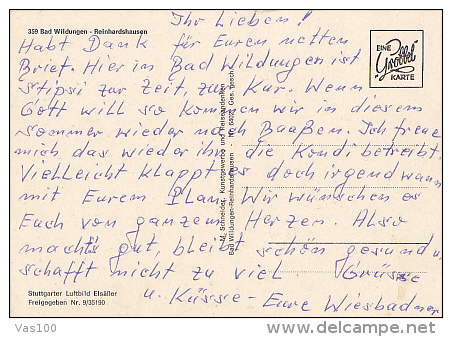 359 Bad Wildungen - Reinhardshausen
Ihr Lieben!
Habt Dank für Euren netten
Brief. Hier in Bad Wildungen ist
Stipsi zur Zeit, zur Kur. Wenn
Gott will so kommen wir in diesem
Sommer wieder nach Baaßen. Ich freue
mich das wieder ihr die Kondi betreibt.
Vielleicht klappt es doch irgend wann
mit Eurem Plan. Wir wünschen es
Euch von ganzem Herzen. Also
macht's gut, bleibt schön gesund u.
schafft nicht zu viel Grüsse
u. Küsse - Eure Wiesbadner
EINE
Grobbel
KARTE
M. Schneider, Kunstgewerbe und
Bad Wildungen-Reinhardshausen
Ges. gesch.
Stuttgarter Luftbild Elsäßer
Freigegeben Nr. 9/35190
Vas100
www.delcampe.net